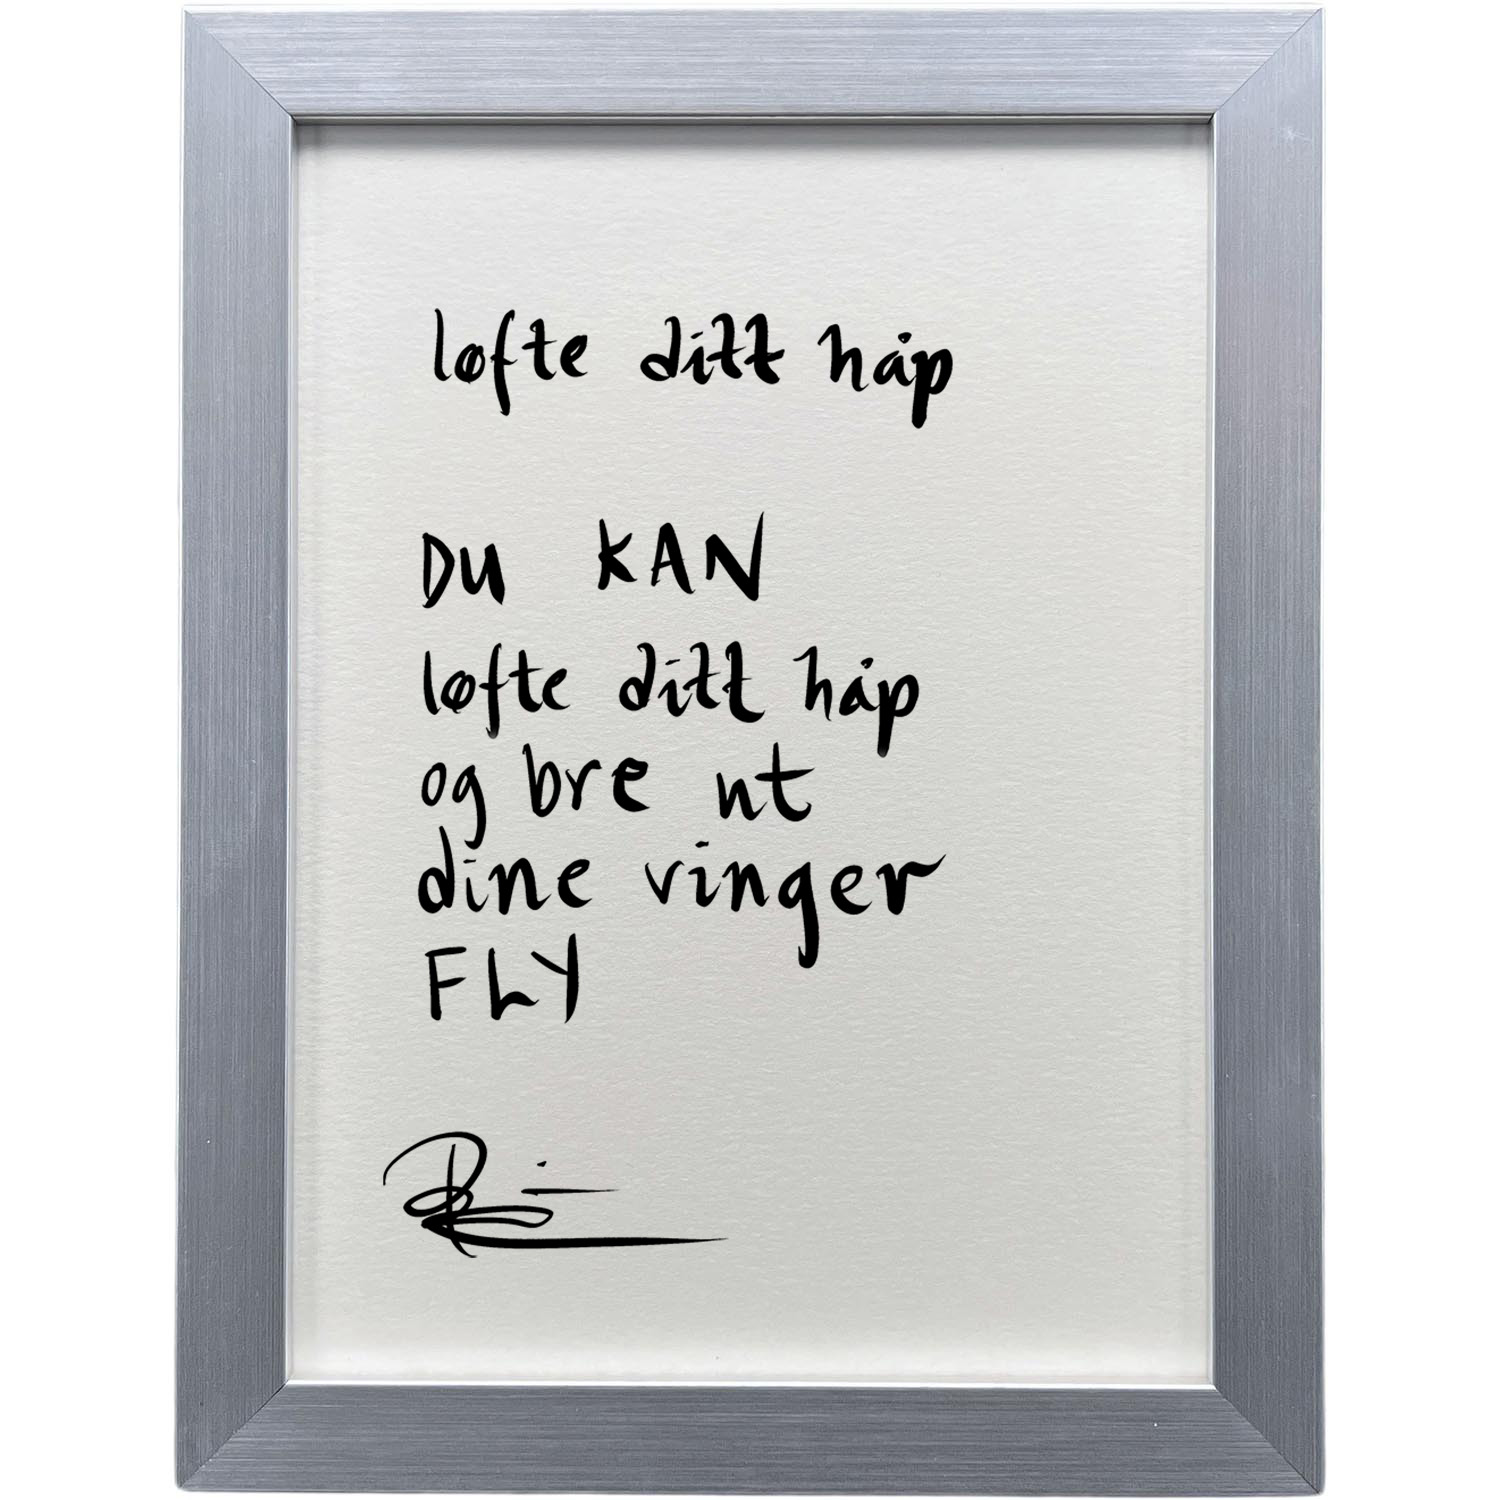 løfte ditt håp
DU KAN
løfte ditt håp
og bre ut
dine vinger
FLY